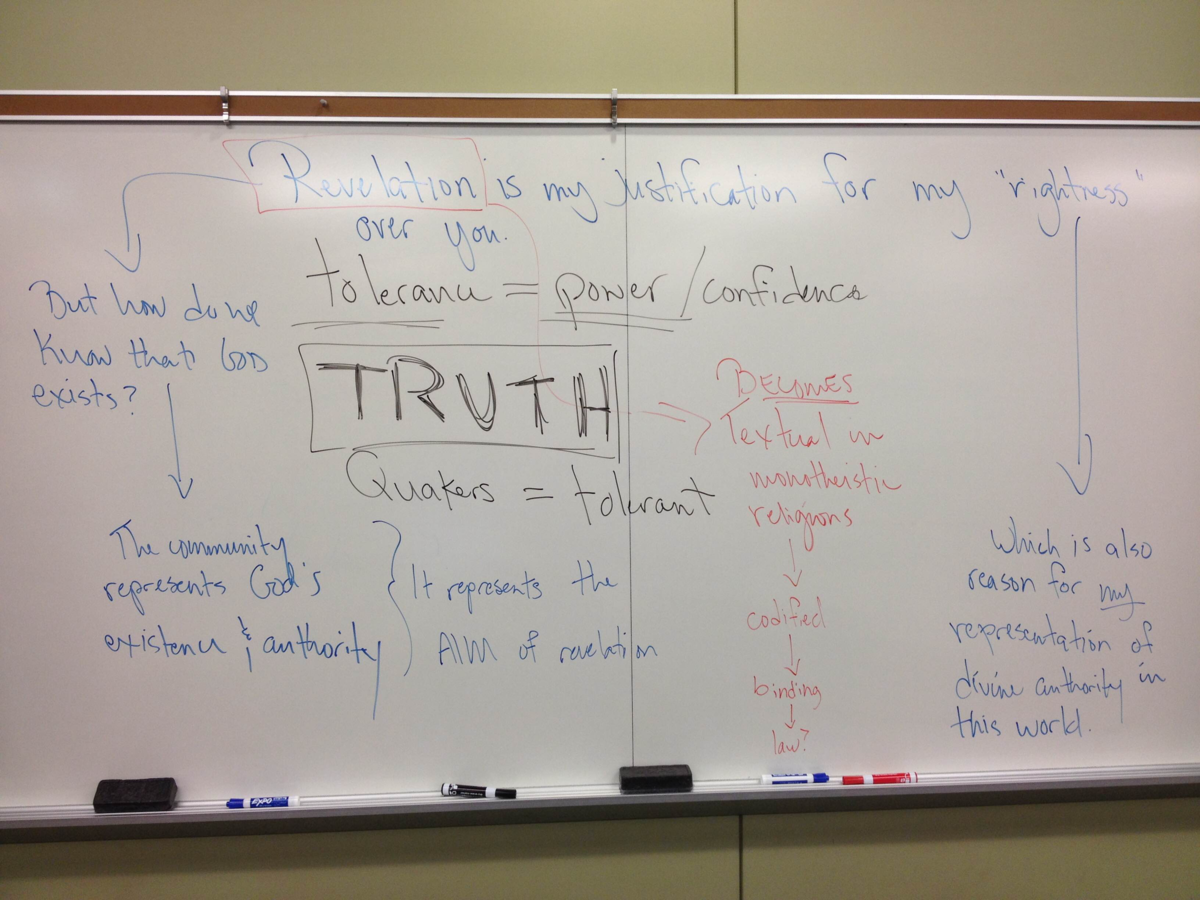 Revelation is my justification for my "rightness"
over you.
tolerance = power / confidence
TRUTH
Quakers = tolerant
But how do we
know that GOD
exists?
The community
represents God's
existence & authority
It represents the
AIM of revelation
BECOMES
Textual in
monotheistic
religions
codified
binding
law?
Which is also
reason for my
representation of
divine authority in
this world.
EXPO